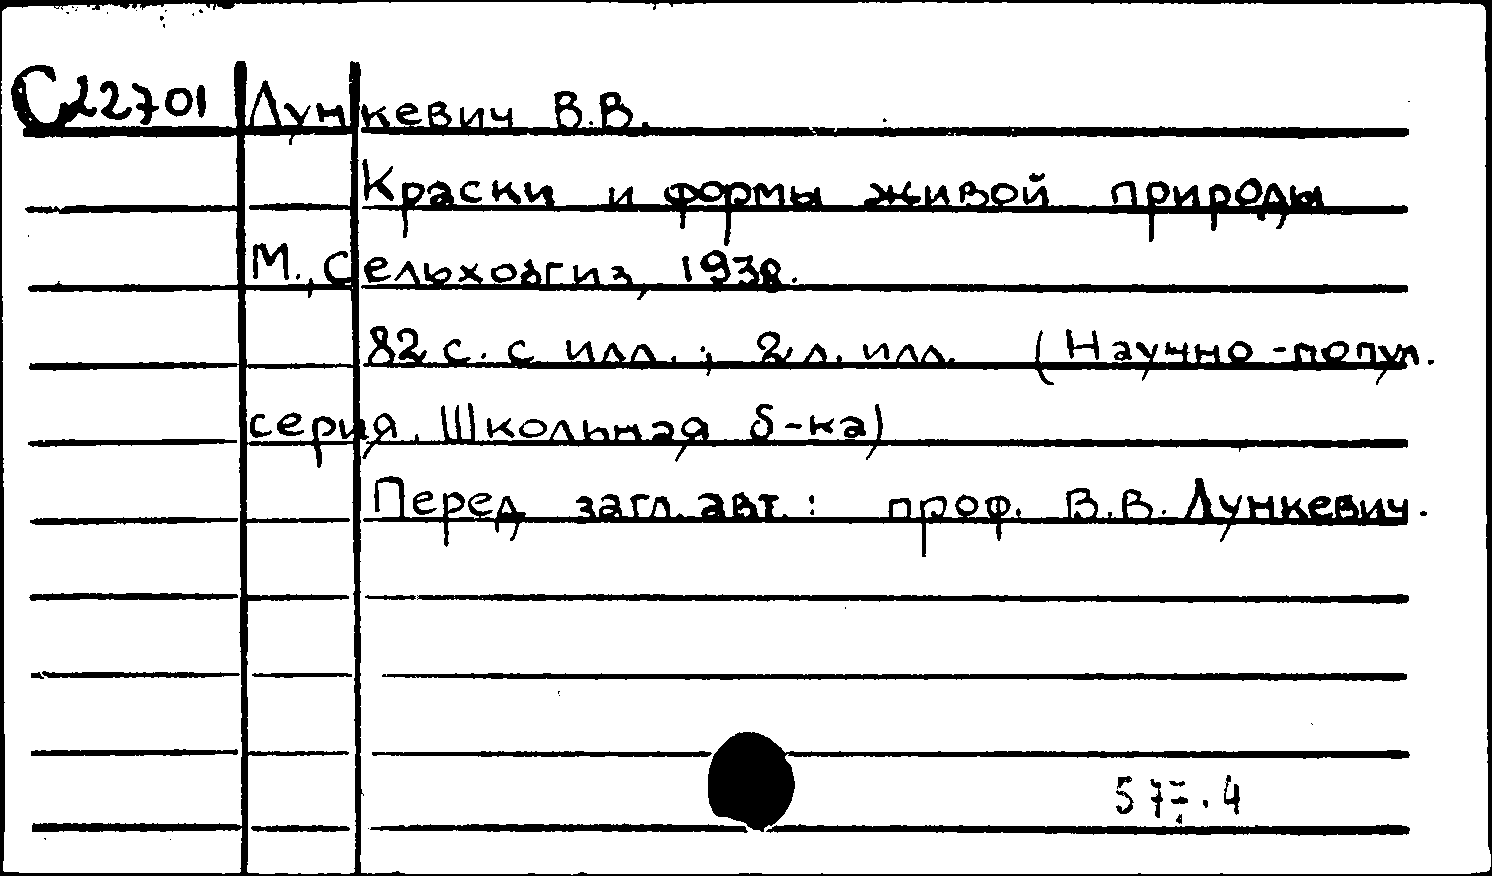 С22701 Лункевич В.В.
Краски и формы живой природы
М., Сельхозгиз, 1938.
82 с. с илл.; 2 л. илл. (Научно-попул.
серия. Школьная б-ка)
Перед загл. авт.: проф. В.В. Лункевич.
577.4